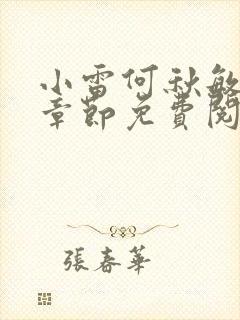 小雷何秋敏
章節免費閱
張春華